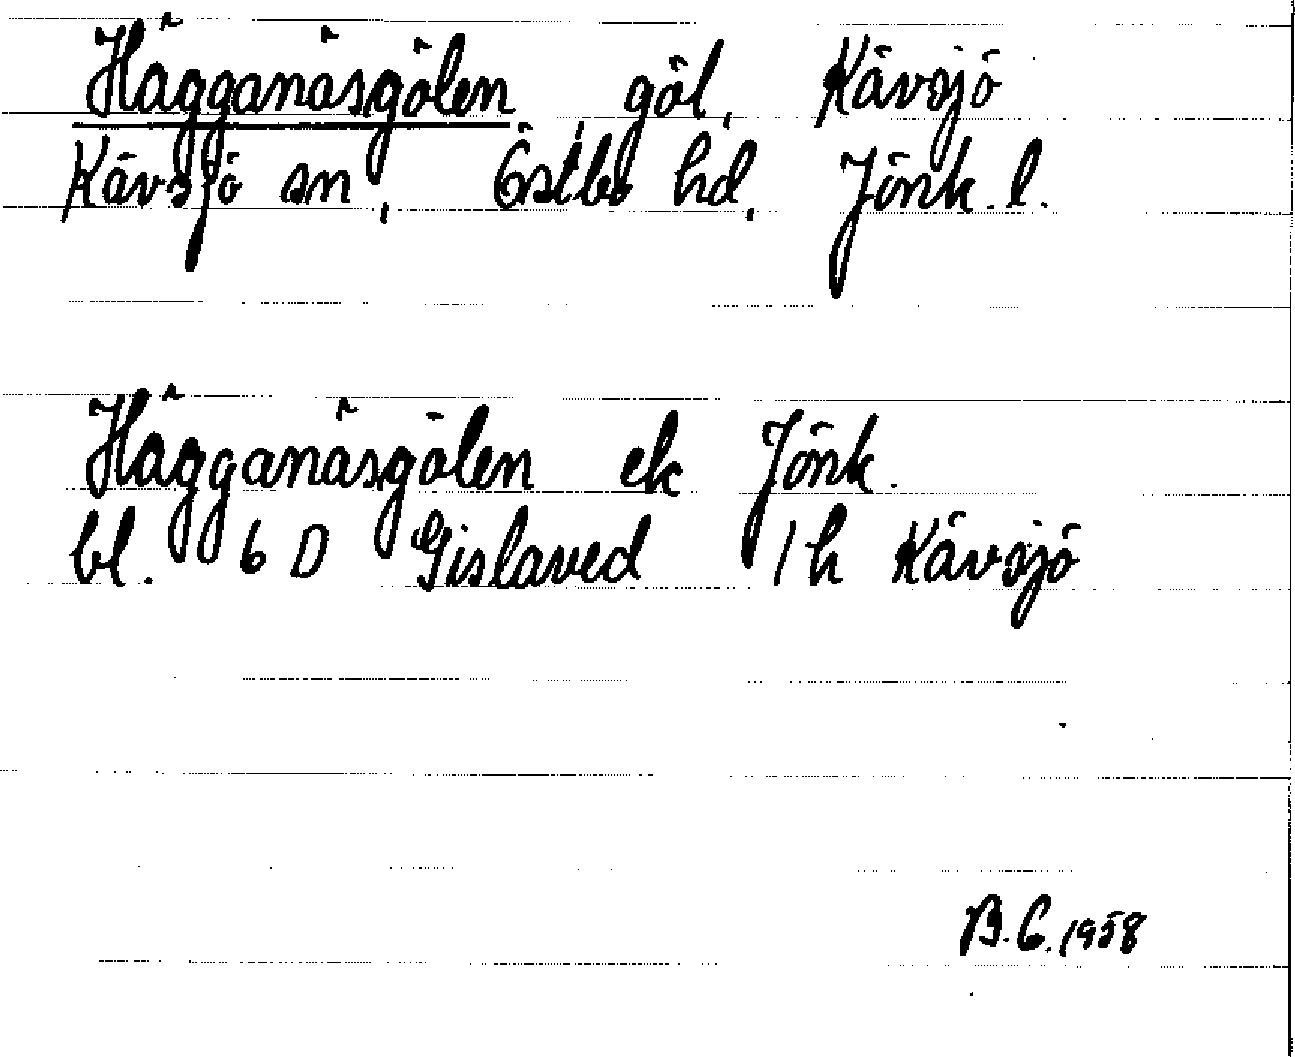 Hägganäsgölen, göl, Kävsjö
Kävsjö sn, Östbo hd, Jönk. l.
Hägganäsgölen ek Jönk.
bl. 6 D Gislaved 1 h Kävsjö
B.C. 1958